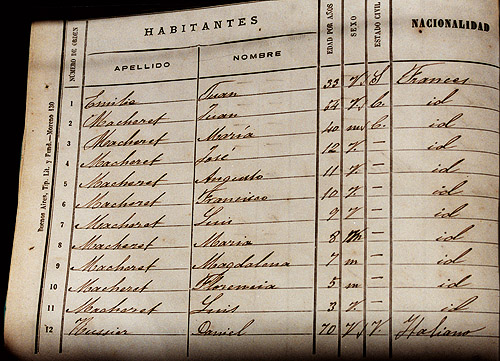 HABITANTES
NÚMERO DE ORDEN
APELLIDO
NOMBRE
EDAD POR AÑOS
SEXO
ESTADO CIVIL
NACIONALIDAD
Buenos Aires, Tip. Lit. y Fund.—Moreno 130
1 Emilio Juan 33 V. S Frances
2 Macheret Juan 54 V. C. id
3 Macheret María 40 m C. id
4 Macheret José 12 V. — id
5 Macheret Augusto 11 V. — id
6 Macheret Francisco 10 V. — id
7 Macheret Luis 9 V — id
8 Macheret Maria 8 m — id
9 Macheret Magdalena 7 m — id
10 Macheret Floremia 5 m — id
11 Macheret Luis 3 V. — id
12 Daniel 70 V V. Italiano